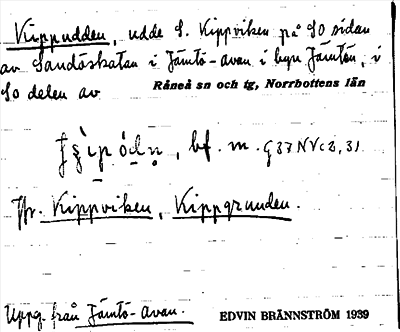 Kippudden, udde S. Kippviken på SO sidan
av Sandöskatan i Jämtö-avan i byn Jämtön, i
SO delen av Råneå sn och tg, Norrbottens län
bf. m.
Jfr. Kippviken, Kippgrunden.
Uppg. från Jämtö-avan. EDVIN BRÄNNSTRÖM 1939